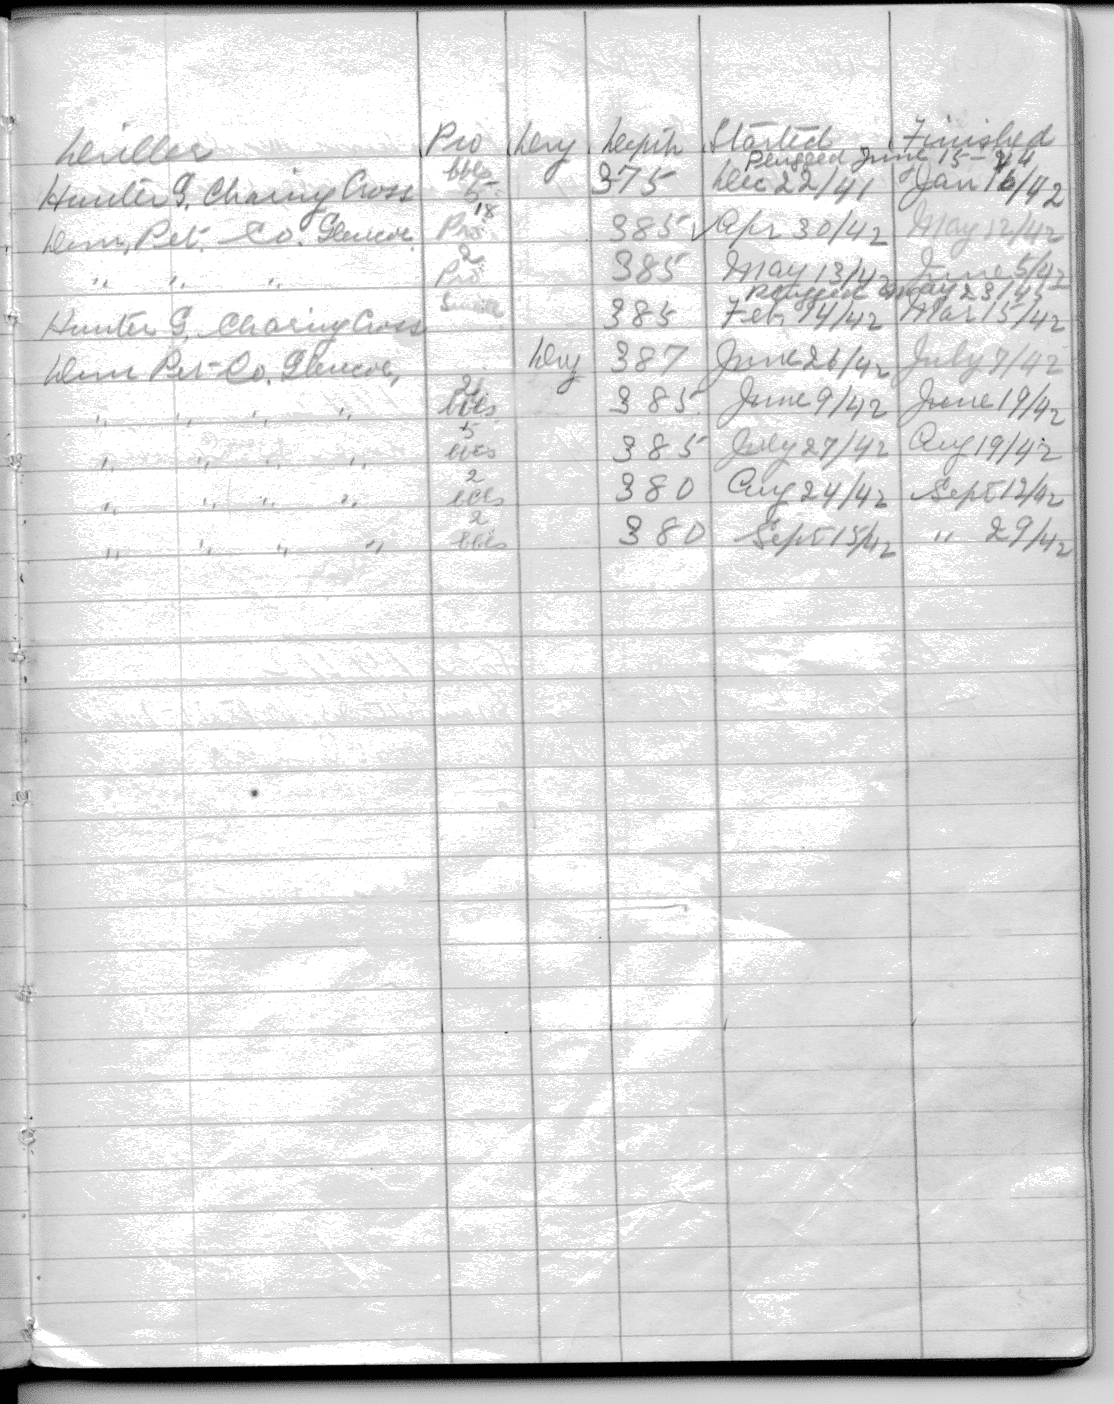 Driller Pro Dry Depth Started Finished
Plugged June 15-44
Hunter G. Charing Cross bbls 5 375 Dec 22/41 Jan 16/42
Dom, Pet, Co. Glencoe, 18 Pro 385 ✓ Apr 30/42 May 12/42
" " " 2 Pro 385 May 13/42 June 5/42
Plugged May 23/45
Hunter G, Charing Cross 385 Feb 14/42 Mar 15/42
Dom Pet- Co. Glencoe, Dry 387 June 26/42 July 7/42
" " " " 2 bbls 385 June 9/42 June 19/42
" " " " 5 bbls 385 July 27/42 Aug 19/42
" " " " 2 bbls 380 Aug 24/42 Sept 12/42
" " " " 2 bbls 380 Sept 15/42 " 29/42